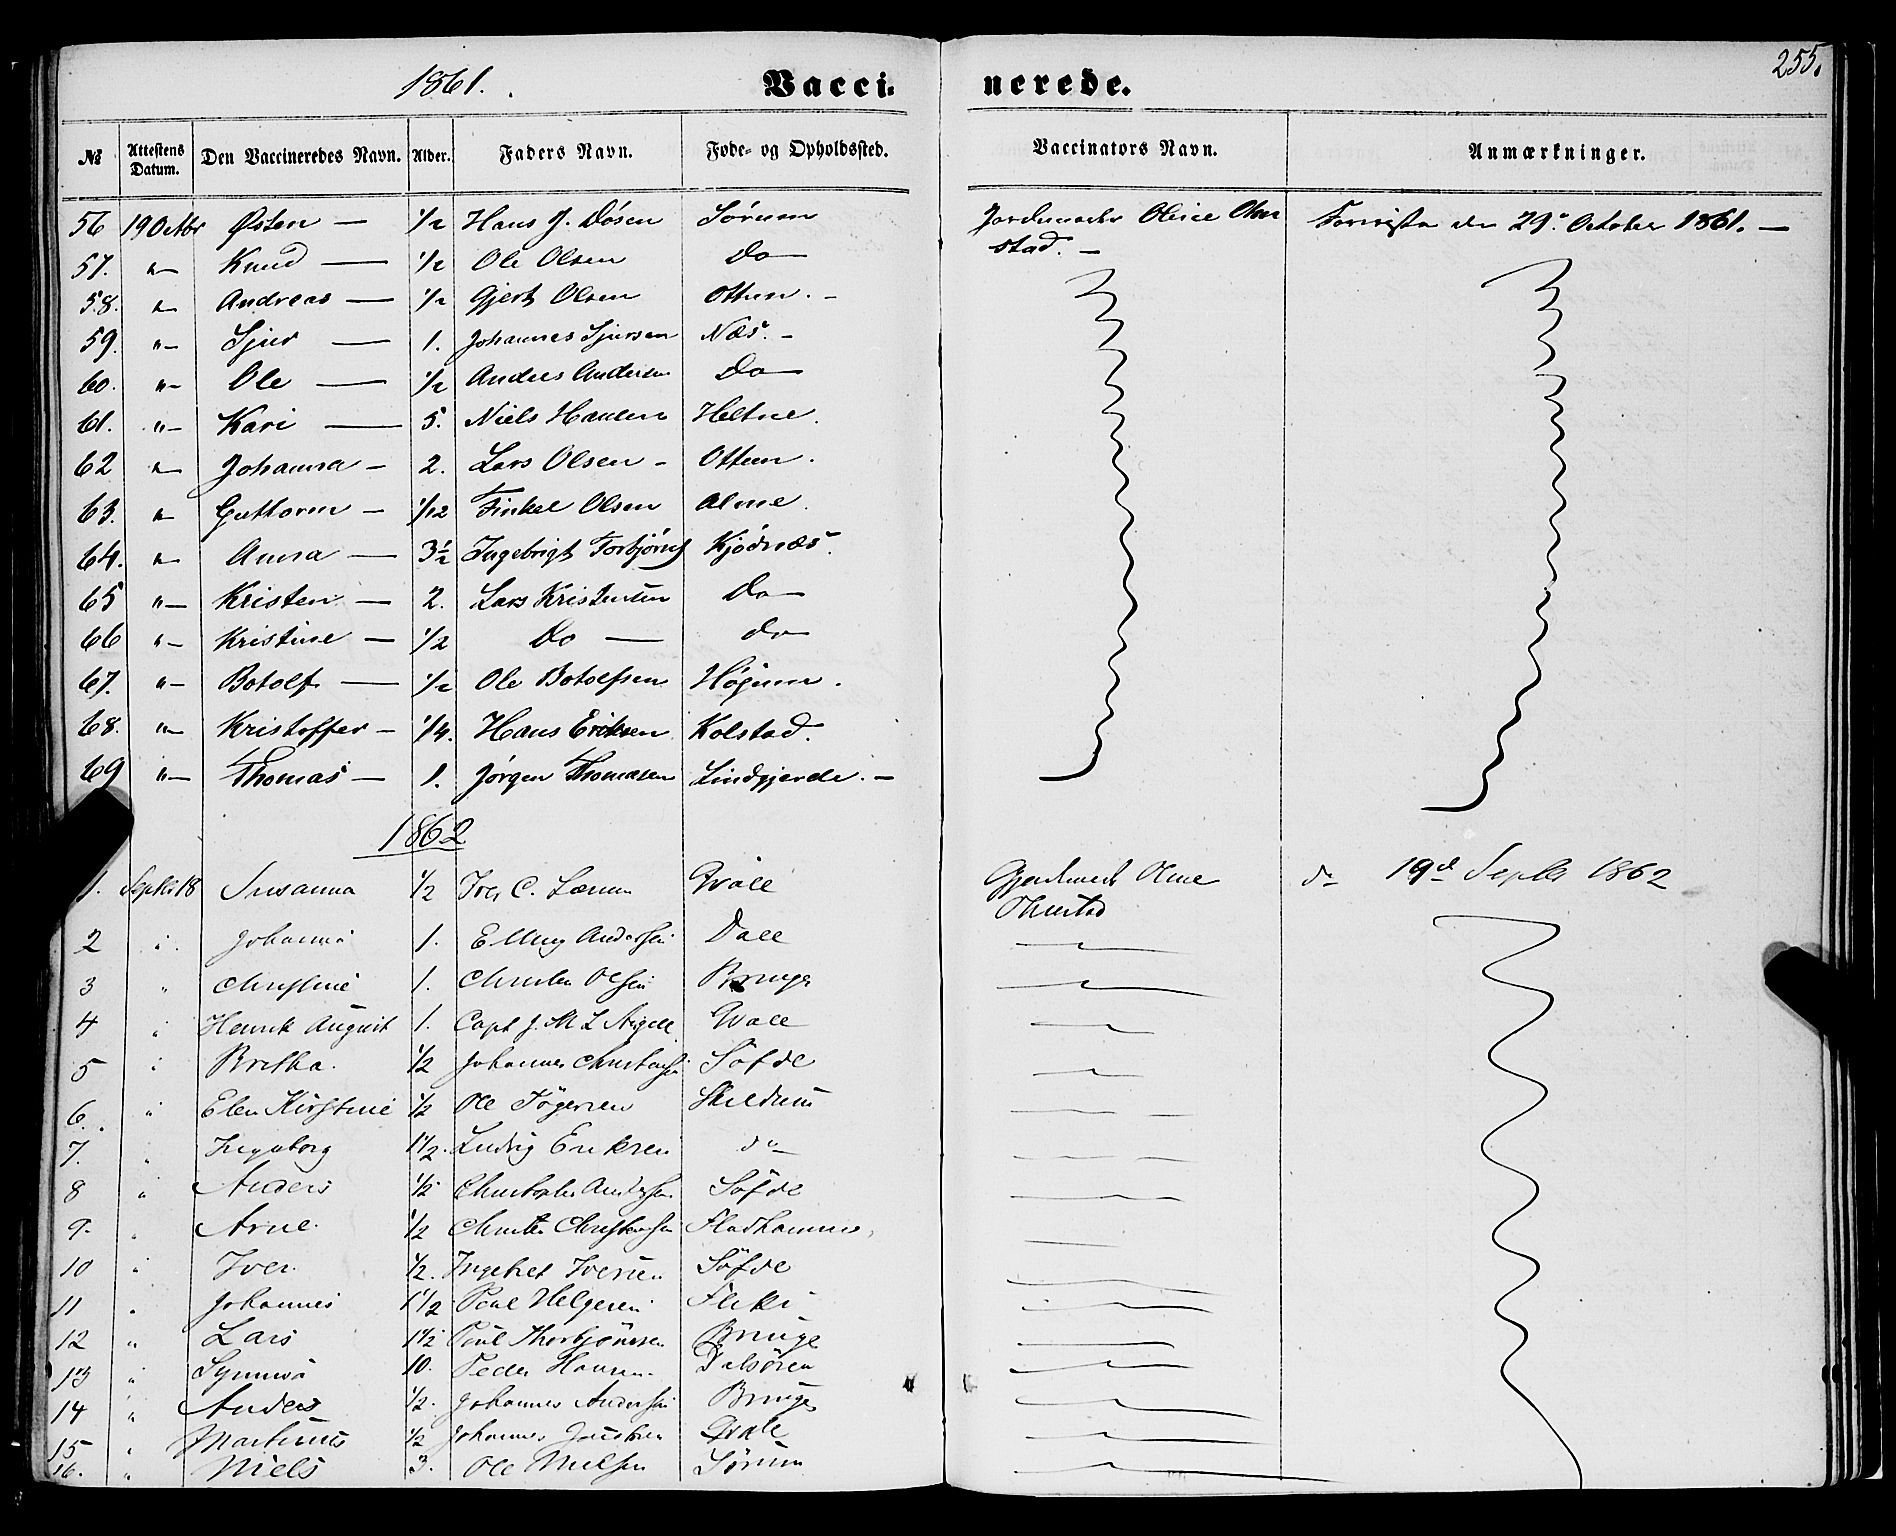 255.
1861. Vaccinerede.
№ Attestens Datum. Den Vaccineredes Navn. Alder. Faders Navn. Føde- og Opholdssted. Vaccinators Navn. Anmærkninger.
56 19 Octbr Østen — 1/2 Hans J. Døsen Sørum Jordemoder Oline Olm
stad. — den 29. October 1861. —
57. " Knud — 1/2 Ole Olsen Do
58. " Andreas — 1/2 Gjert Olsen Ottum. -
59. " Sjur — 1. Johannes Sjursen Næs. -
60. " Ole — 1/2 Andres Andersen Do
61. " Kari — 5. Niels Hansen Heltne.
62 " Johanna - 2. Lars Olsen - Ottum.
63. " Guttorm - 1/12 Finkel Olsen Alme.
64. " Anna — 3 1/2 Ingebrigt Torbjørns Kjødnæs.
65 " Kristen — 2. Lars Kristensen Do
66 " Kristine — 1/2 Do — do
67. " Botolf — 1/2 Ole Botolfsen Høgum.
68. " Kristoffer - 1/4. Hans Eriksen Kolstad.
69 " Thomas - 1. Jørgen Thomasen Lindgjerde. -
1862
1. Septbr 18 Susanna 1/2 Iver C. Qvale do 19d Septbr 1862
2 " Johanna 1. Elling Andersen Dale
3 " Christine 1. Christen Olsen Bruge
4 " Henrik August 1. Capt J. M. L. Qvale
5 " Bretha. 1/2 Johannes Søfde
6. " Elen Kirstine 1/2 Ole Skildum
7. " Ingeborg 1 1/2. Ludvig Eriksen do
8 " Anders 1/2 Christopher Andersen Søfde
9. " Arne. 1/2 Christen Christensen Fladhammer
10 " Iver. 1/2. Ingebret Iversen Søfde
11 " Johannes 1 1/2 Poul Helgesen
12 " Lars 1 1/2 Poul Thorbjörnsen Bruge
13 " Synneva 10. Peder Hansen Dalsøren
14 " Anders 1/2. Johannes Andersen Bruge
15 " Martinus 1/2 Johannes Qvale
16. " Niels 3. Ole Nielsen Sørum